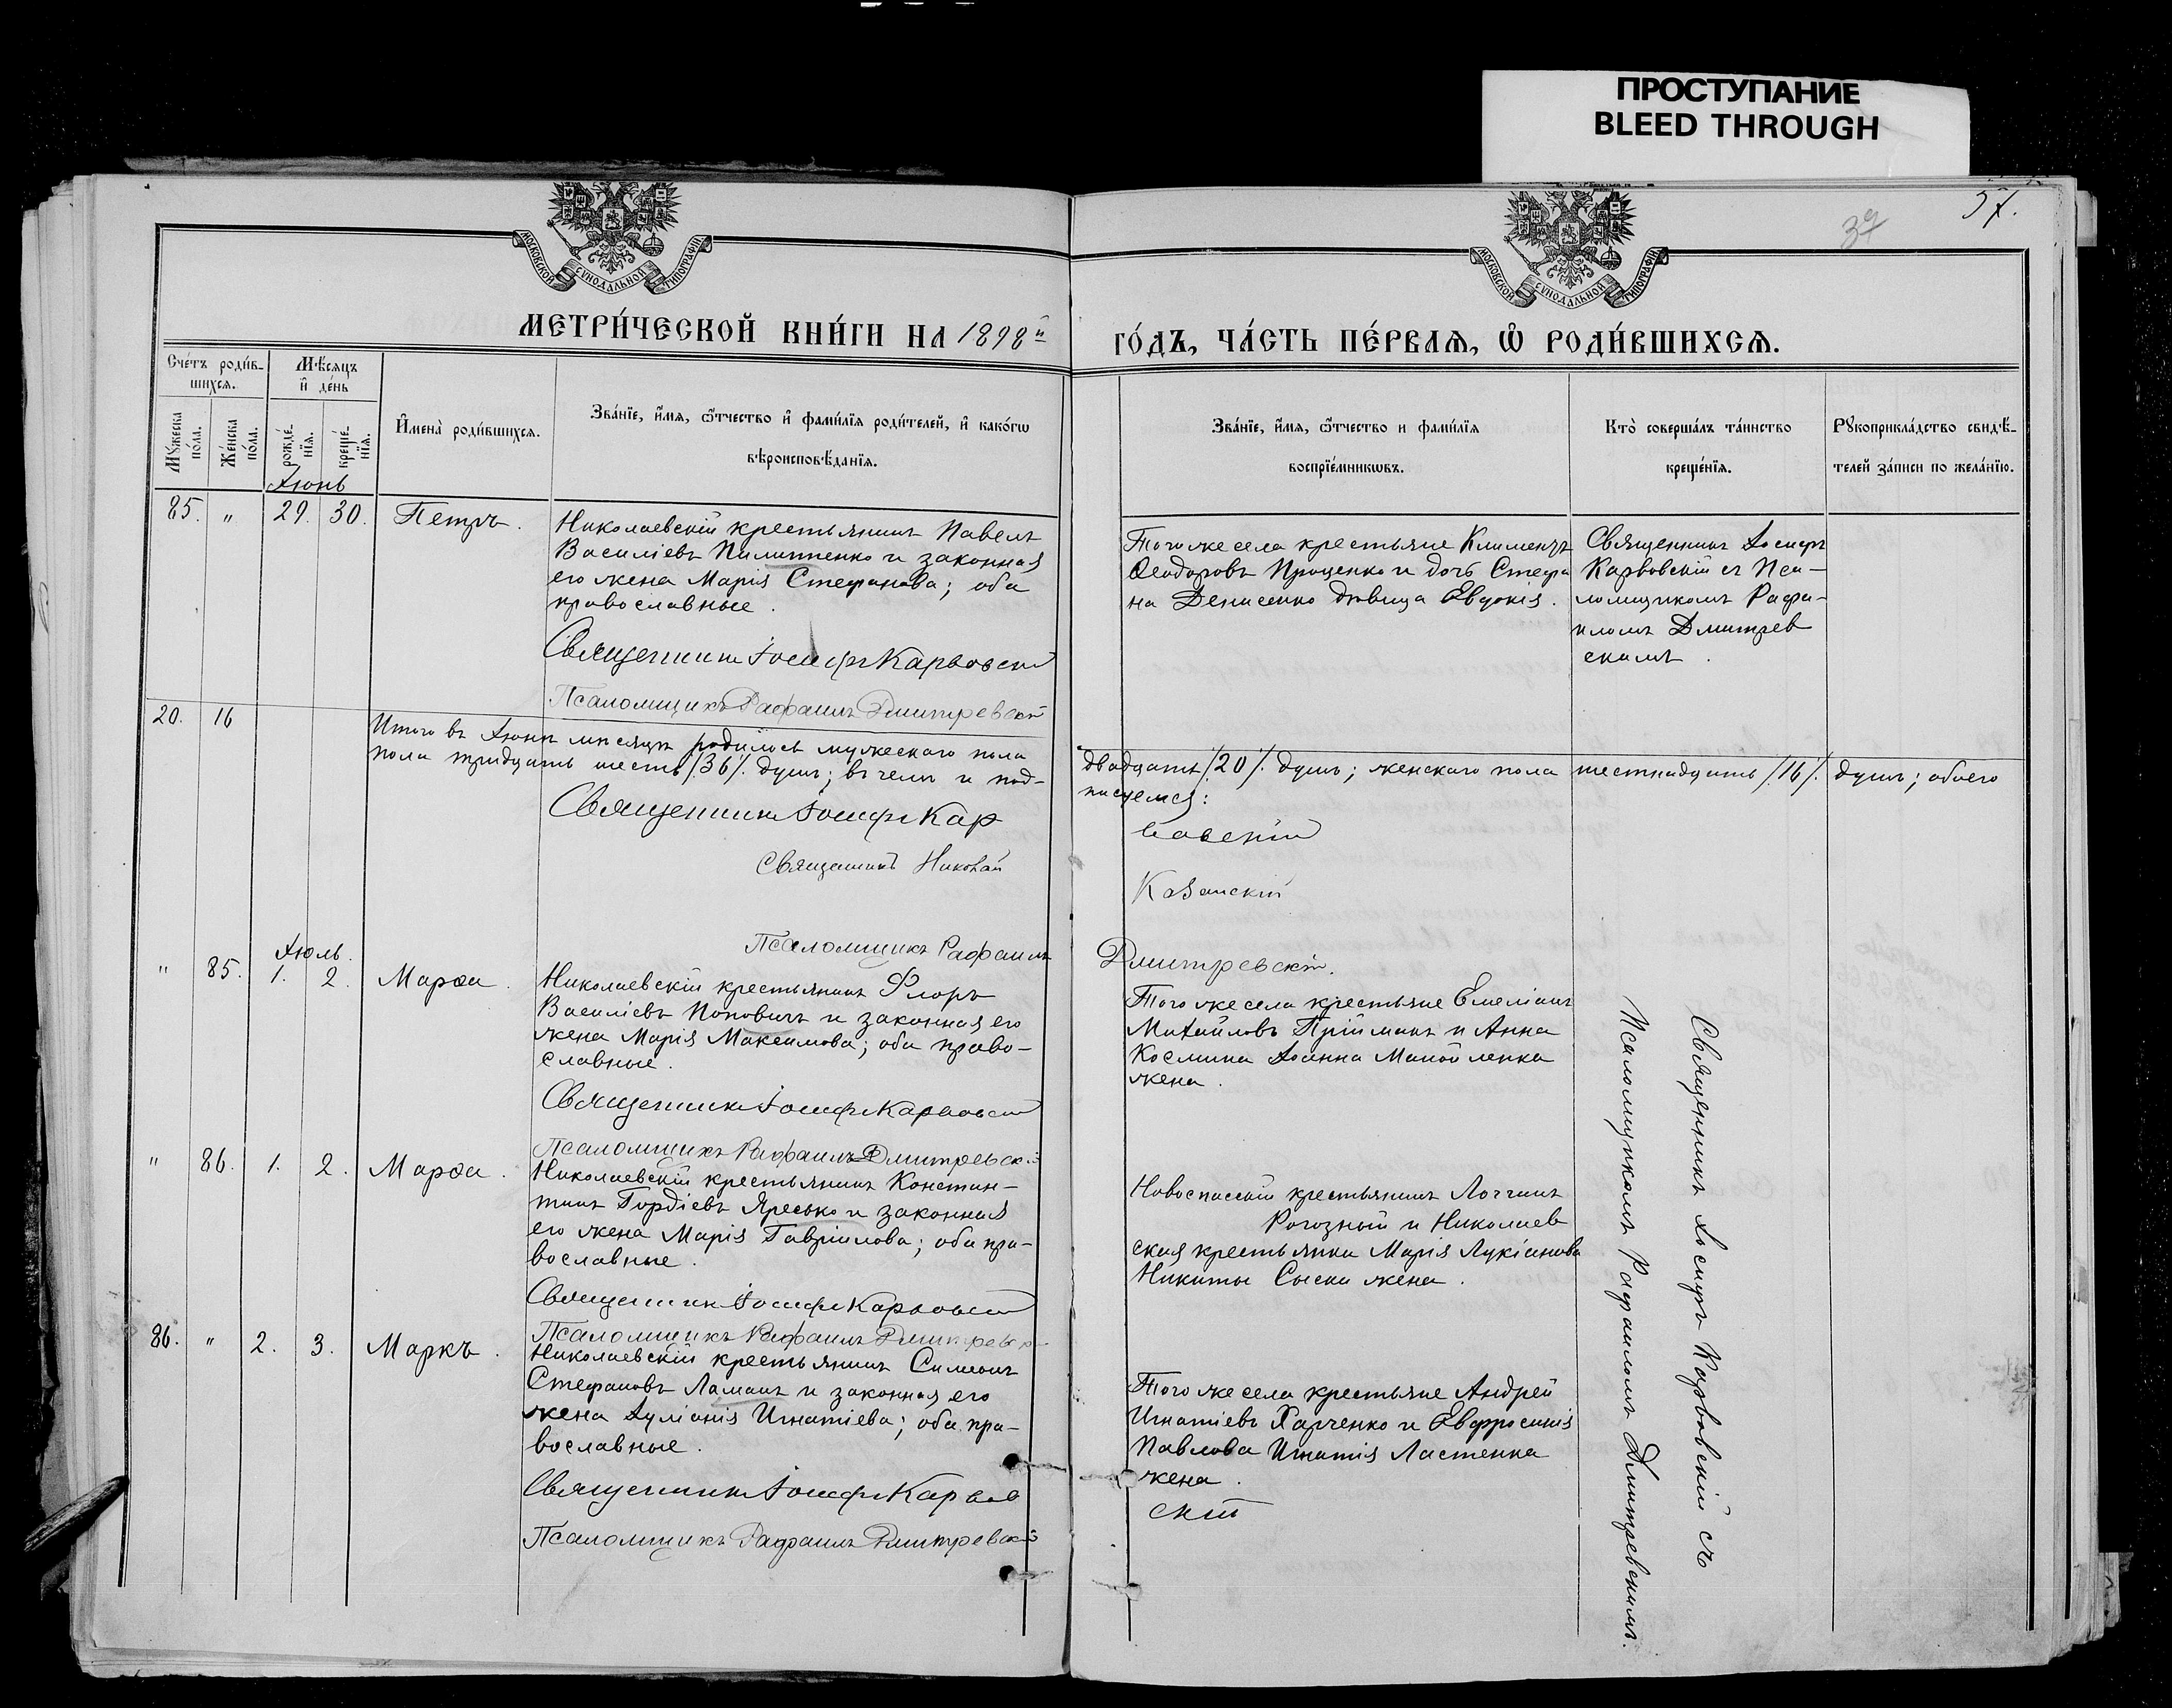 ПРОСТУПАНИЕ
BLEED THROUGH
57.
39
МОСКОВСКОЙ СѴНОДАЛЬНОЙ ТИПОГРАФІИ
МОСКОВСКОЙ СѴНОДАЛЬНОЙ ТИПОГРАФІИ
МЕТРИ́ЧЕСКОЙ КНИ́ГИ НА 1898й
ГО́ДЪ, ЧА́СТЬ ПЕ́РВАѦ, Ѡ҆ РОДИ́ВШИХСѦ.
Сче́тъ роди́в-
шихсѧ.
Мѣ́сѧцъ
и҆ де́нь
Мꙋ́жеска
по́ла.
Же́нска
по́ла.
рожде́-
нїѧ.
креще́-
нїѧ.
И҆мена̀ роди́вшихсѧ.
Зва́нїе, и҆́мѧ, ѻ҆́тчество и҆ фамі́лїѧ роди́телей, и҆ како́гѡ
вѣроисповѣ́данїѧ.
Зва́нїе, и҆́мѧ, ѻ҆́тчество и фамі́лїѧ
воспрїе́мникѡвъ.
Кто̀ соверша́лъ та́инство
креще́нїѧ.
Рꙋкоприкла́дство свидѣ́-
телей за́писи по жела́нїю.
Іюнь
85. " 29. 30. Петръ.
Николаевскій крестьянинъ Павелъ
Василіевъ Пилипенко и законная
его жена Марія Стефанова; оба
православные.
Священникъ Іосифъ Карвовскій
Псаломщикъ Рафаилъ Дмитревскій
Того же села крестьяне Климентъ
Ѳеодоровъ Проценко и дочь Стефа
на Денисенко дѣвица Евдокія.
Священникъ Іосифъ
Карвовскій съ Пса-
ломщикомъ Рафа-
иломъ Дмитрев
скимъ.
20. 16
Итого въ Іюнѣ мѣсяцѣ родилось мужескаго пола
двадцать /.20/. душъ; женскаго пола шестнадцать /.16/. душъ; обоего
пола тридцать шесть /.36/. душъ; въ чемъ и под-
писуемся:
Священникъ Іосифъ Кар
вовскій
Священникъ Николай
Казанскій
Псаломщикъ Рафаилъ
Дмитревскій.
Іюль.
" 85. 1. 2. Марѳа.
Николаевскій крестьянинъ Флоръ
Василіевъ Поповичъ и законная его
жена Марія Максимова; оба право-
славные.
Священникъ Іосифъ Карвовскій
Псаломщикъ Рафаилъ Дмитревскій
Того же села крестьяне Емеліанъ
Михайловъ Прійманъ и Анна
Космина Іоанна Манойленка
жена.
" 86. 1. 2. Марѳа.
Николаевскій крестьянинъ Констан-
тинъ Гордіевъ Яресько и законная
его жена Марія Гавріилова; оба пра-
вославные.
Священникъ Іосифъ Карвовскій
Псаломщикъ Рафаилъ Дмитревскій
Новоспасскій крестьянинъ Логгинъ
Рогозный и Николаев
ская крестьянка Марія Лукіанова
Никиты Сыска жена.
86. " 2. 3. Маркъ.
Николаевскій крестьянинъ Симеонъ
Стефановъ Ламанъ и законная его
жена Іуліанія Игнатіева; оба пра-
вославные.
Священникъ Іосифъ Карвов
скій
Псаломщикъ Рафаилъ Дмитревскій
Того же села крестьяне Андрей
Игнатіевъ Харченко и Евфросинія
Павлова Игнатія Ластенка
жена.
Священникъ Іосифъ Карвовскій съ
Псаломщикомъ Рафаиломъ Дмитревскимъ.